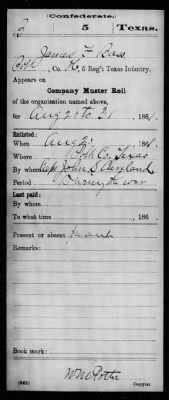 Confederate.
B 5 Texas.
James F
Co. K, 5 Reg't Texas Infantry.
Appears on
Company Muster Roll
of the organization named above,
for Aug 20 to 31, 1861.
Enlisted:
When Aug 20, 1861.
Where Polk Co. Texas
By whom Cap John S. Cleveland
Period During the war
Last paid:
By whom
To what time , 186 .
Present or absent Present
Remarks:
Book mark:
(642) Copyist.